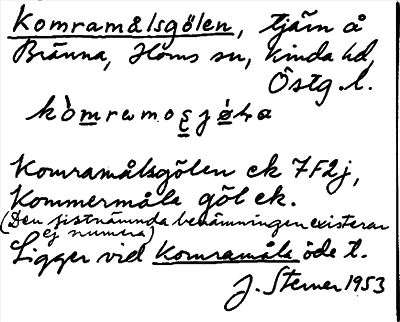 Komramålsgölen, tjärn å
Bränna, Horns sn, Kinda hd,
Östg. l.
Komramålsgölen ek 7F2j,
Kommermåla göl ek.
(Den sistnämnda benämningen existerar
ej numera)
Ligger vid Komramåla öde t.
J. Sterner 1953